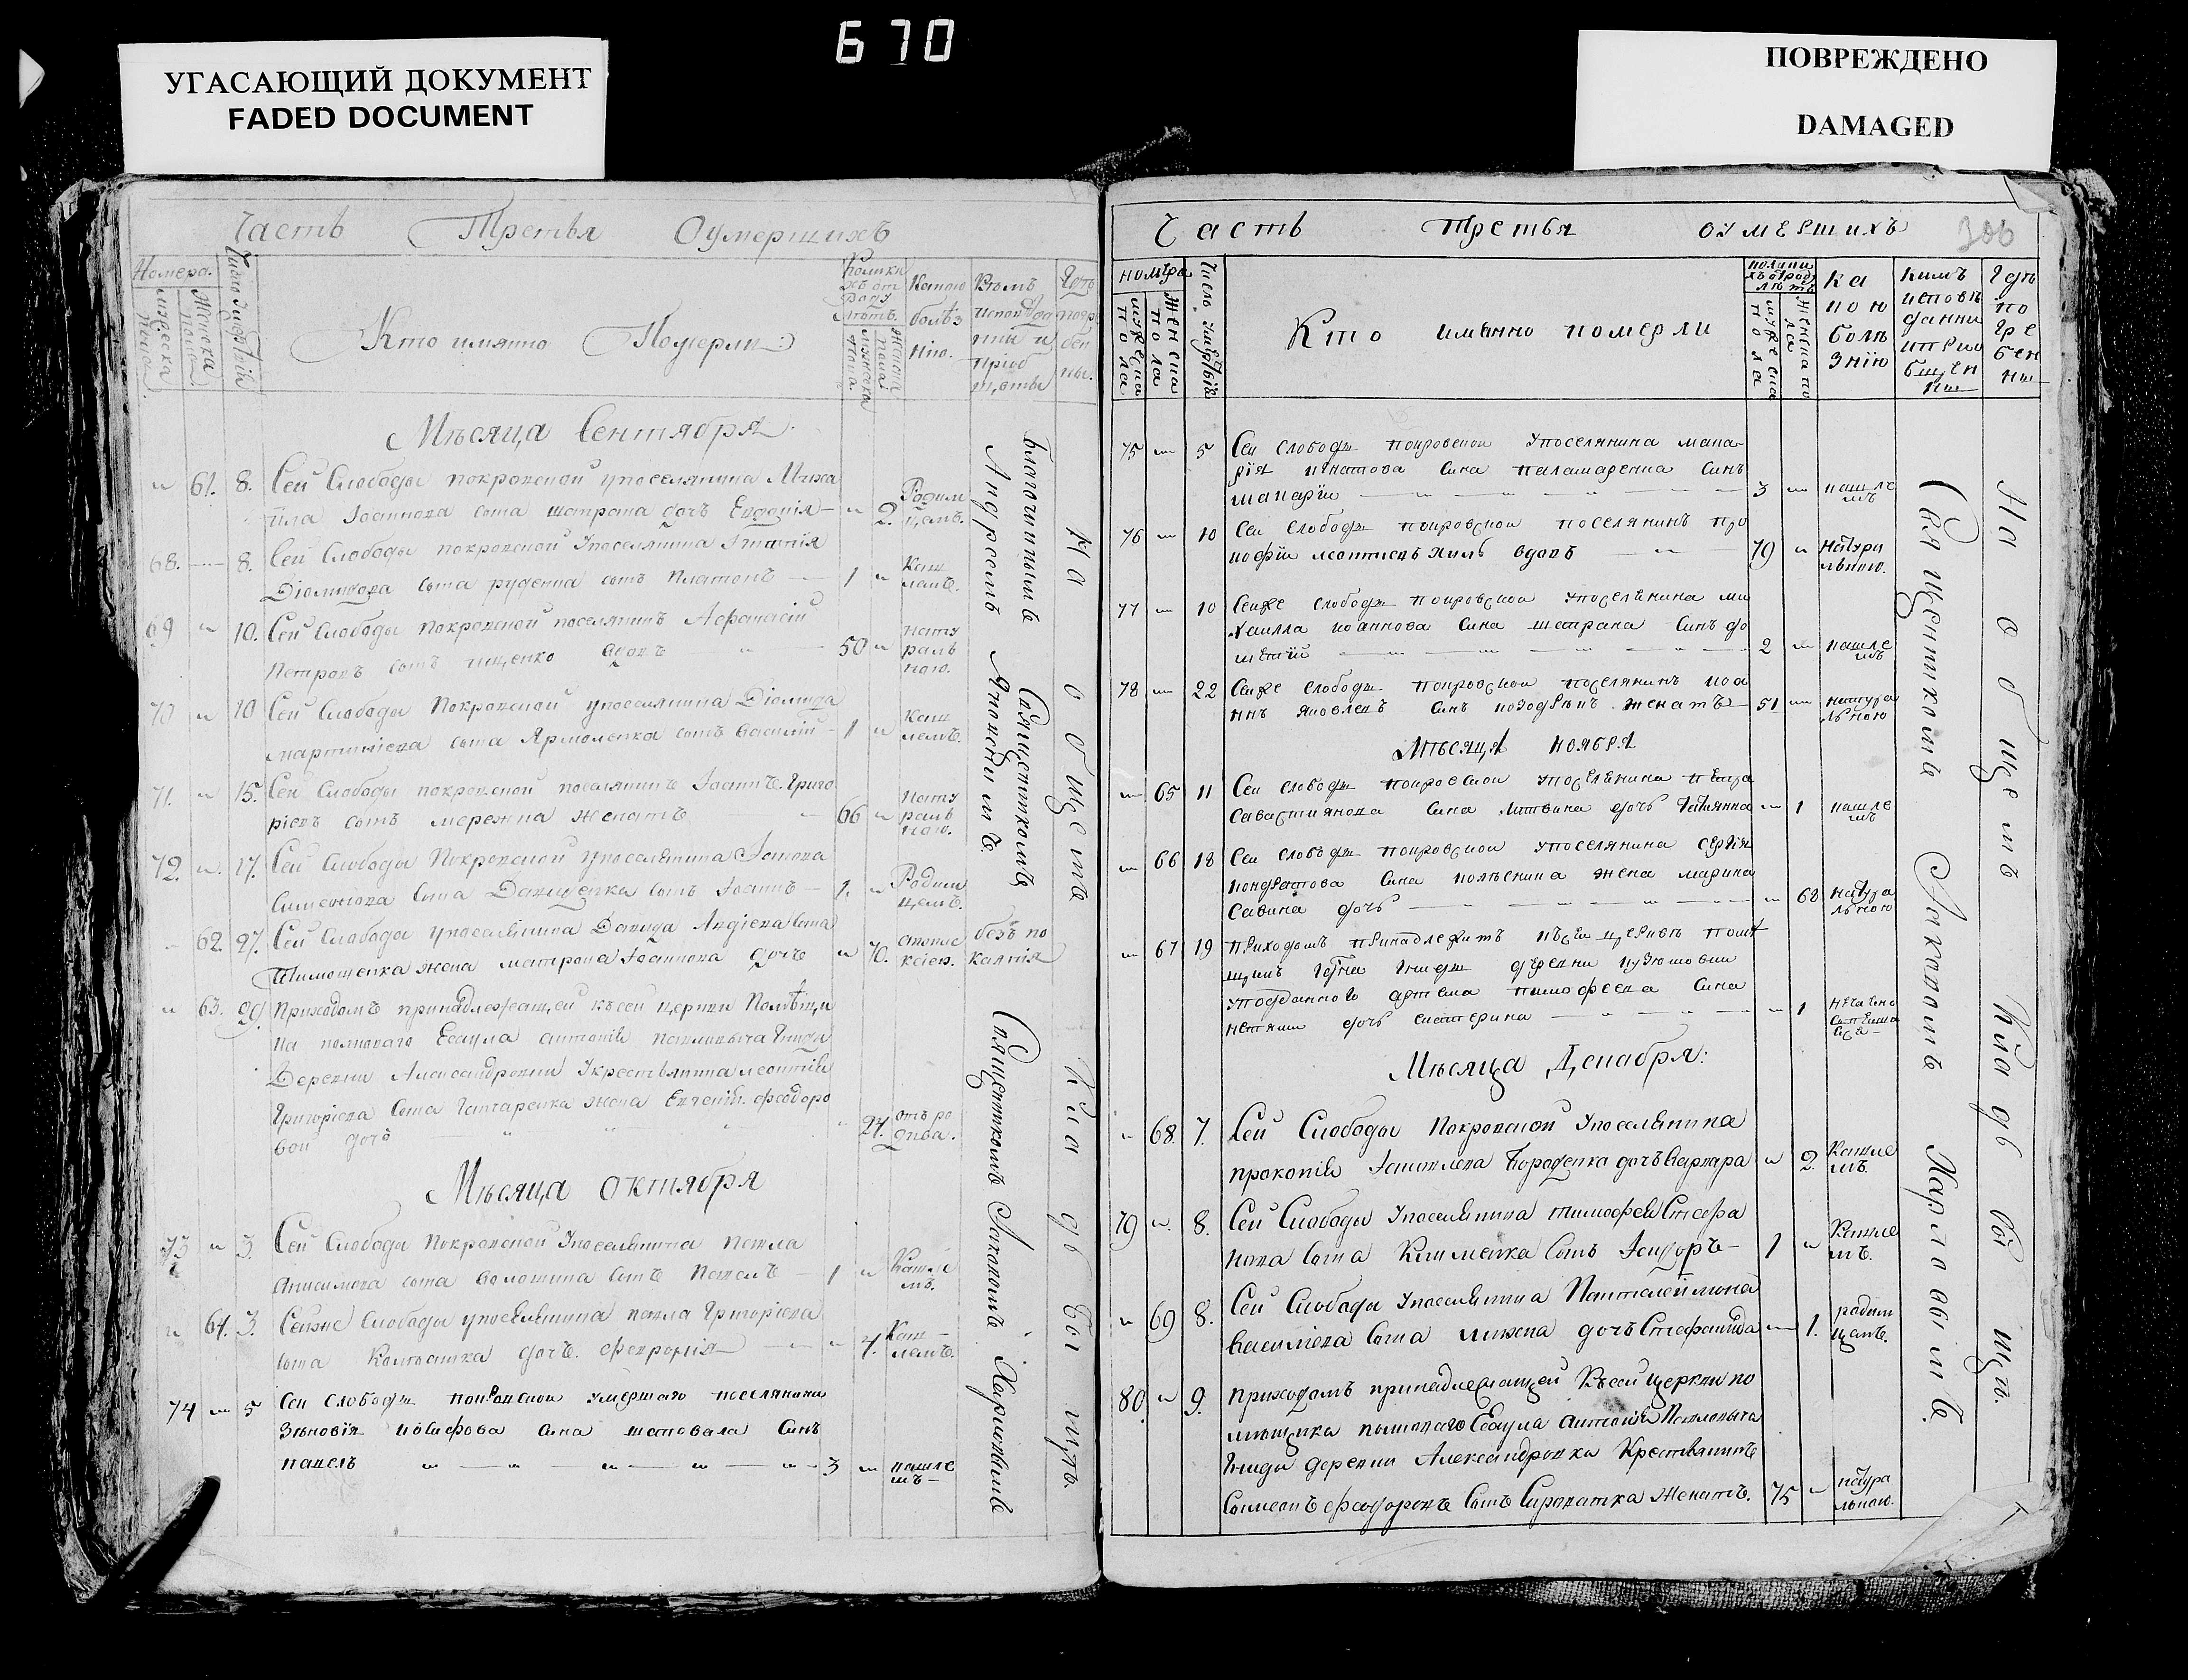 670
УГАСАЮЩИЙ ДОКУМЕНТ
FADED DOCUMENT
ПОВРЕЖДЕНО
DAMAGED
Часть Третья Оумершихъ
Номера.
Число умертвiй
Кто имянно Померли:
Колики
хъ отъ
роду
лѣтъ.
Какою
болѣз
нiю.
Кѣмъ
исповѣда
ны и
прiоб
щены
Гдѣ
погре
бен
ны.
Мѣсяца Сентября
„ 61. 8. Сей Слободы покровской упоселянина Миха
ила Iоаннова сына шатрана дочь Евдокiя — „ 2. Родим
цемъ.
68. — 8. Сей Слободы покровской упоселянина Игнатiя
Дiомидова сына руденка сынъ Платонъ — 1 „ Каш
лемъ.
69 „ 10. Сей Слободы Покровской поселянинъ Афанасiй
Петровъ сынъ тищенко вдовъ — „ — 50 „ нату
раль
ною.
70 „ 10 Сей Слободы Покровской упоселянина Дiомида
мартинiева сына Ярмоленка сынъ василiй — 1 „ Каш
лемъ.
71. „ 15. Сей Слободы покровской поселянинъ Iоаннъ Григо
рiевъ сынъ мережка женатъ „ 66 „ Нату
раль
ною.
72. „ 17. Сей Слободы Покровской упоселянина
Симеонова сына Данщенка сынъ Iоаннъ — 1. „ Родим
цемъ.
„ 62. 27. Сей Слободы упоселянина Давида сына
Тимошенка жена матрона Iоаннова дочь „ 70. безъ по
каянiя
„ 63. 29. Приходомъ принадлежащей късей церкви Помѣщи
ка полковаго Есаула антонiя павловича Гнида
Деревни Александровки Укрестьянина леонтiя
Григорiева сына Гончаренка жена Евгенiя феодоро
вой дочь „ „ „ „ 24. отъ ро
дива.
Мѣсяца октября
73 „ 3. Сей Слободы Покровской Упоселянина павла
Анисимова сына волошина сынъ Павелъ — 1 „ Кашле
мъ.
„ 64. 3. Сейже Слободы упоселянина павла Григорiева
сына дочь. феврония — „ 4. Каш—
лемъ.
74 — 5 Сеи слободы покровскои умершаго поселянина
Зѣновiя иосифова сина шаповала синъ
павелъ „ — „ — „ — „ — „ — 3 „ кашле
мъ—
Благочиннымъ Священникомъ
Андреемъ
Священникомъ Iаковомъ Харловымъ
На общемъ Кладбищѣ.
Часть третья оумершихъ 306
номера
мужеска
пола
женска
пола
Число умертвiя
Кто имянно померли
мужеска
пола
женска по
ла
ка
кою
болѣ
знiю
кимъ
исповѣ
данни
ипрiо
бщен
ны
гдѣ
по
гре
бен
ни
75 — 5 Сеи слободы покровскои Упоселянина мака—
рiя игнатова сина паламаренка синъ
макарiи — „ — „ — „ — „ — 3 — кашле
мъ
76 — 10 Сеи слободы покровскои поселянинъ про
кофiи леонтиевъ хиль вдовъ — „ 79 „ Натура
льною.
77 — 10 Сеиже слободы покровскои упоселянина ми
хаилла иоаннова сина шатрана Синъ до
ментiи — „ — „ — „ — „ — 2 — кашле
мъ
78 — 22 Сеиже слободы покровскои поселянинъ иоа
ннъ яковлевъ синъ козодѣинъ женатъ — 51 — натура
льною
Мѣсяця ноября
— 65 11 Сеи слободы покровскои упоселянина петра
савастиянова сина литвина дочь татиянна — 1 кашле
мъ
— 66 18 Сеи слободы покровскои упоселянина сергiя
кондратова сина жена марина
савина дочь — „ — „ — „ — „ — 68 натура
льною
— 67 19 приходомъ принадлежитъ късеи церквѣ помѣ
щикъ Гниды деревни
уподданного артема тимофеева сина
дочь екатерина — „ — „ — „ 1 нечаено
Мѣсяца Декабря:
„ 68. 7. Сей Слободы Покровской Упоселянина
прокопiя Бороденка дочь варвара „ 2. Кашле
мъ.
79 „ 8. Сей Слободы Упоселянина тимофея Стефа
нова сына Клименка сынъ Исидоръ — 1 „ Кашле
мъ.
„ 69 8. Сей Слободы Упоселянина Пантелеймона
василiева сына дочь Стефанида — 1. родим
цемъ.
80. „ 9. приходомъ принадлежащей Късей церкви по
мѣщика полковаго Есаула антонiя Павловича
Гниды деревни Александровка Крестьянинъ
Симеонъ феодоровъ сынъ Сироватка женатъ. 75 „ натура
льною.
Священникомъ Iаковомъ Харловымъ.
На общемъ Кладбищѣ.